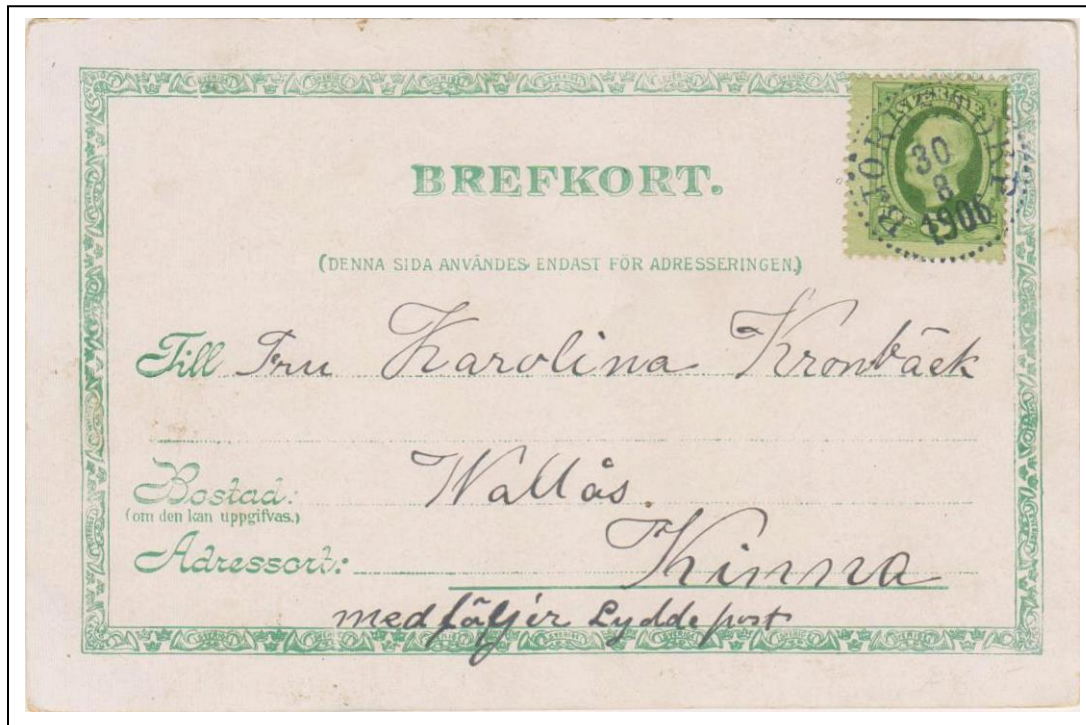 BREFKORT.
30
8
1906
(DENNA SIDA ANVÄNDES ENDAST FÖR ADRESSERINGEN.)
Till Fru Karolina Kronbäck
Wallås
Bostad:
(om den kan uppgifvas.)
Kinna
Adressort:
medföljer Lyddepost